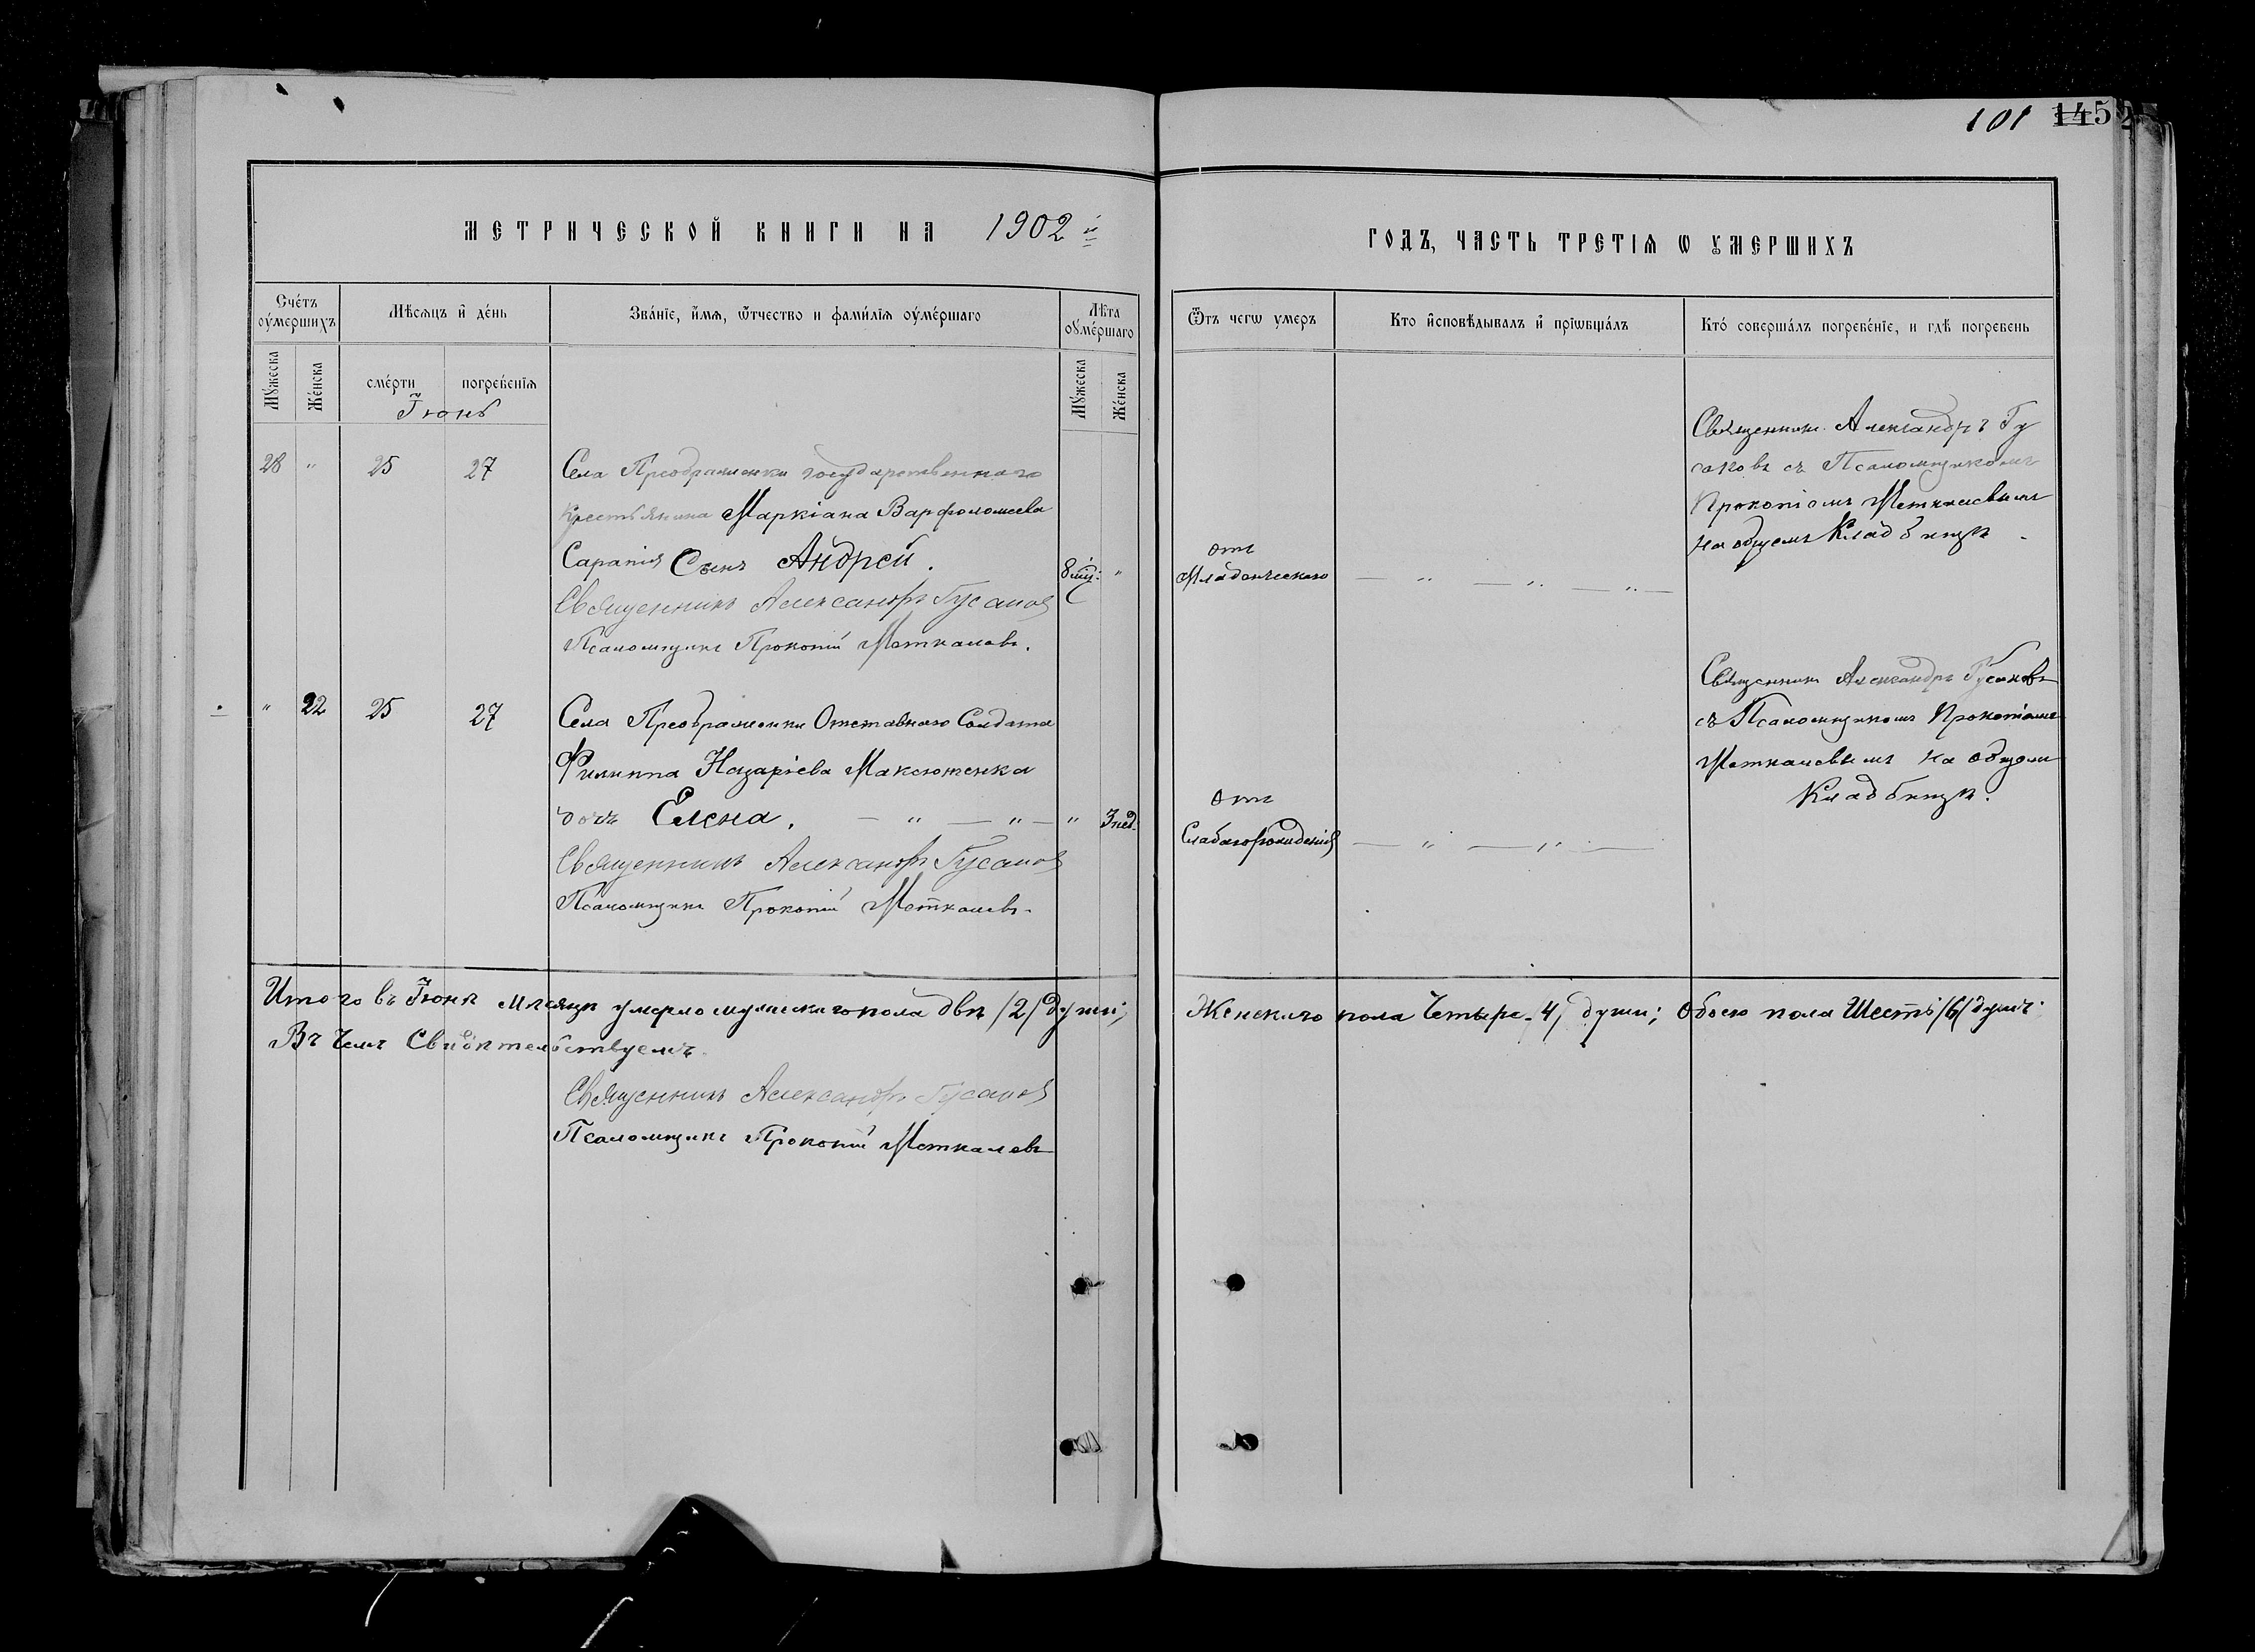 101 1452
МЕТРИЧЕСКОЙ КНИГИ НА 1902й
ГОДЪ, ЧАСТЬ ТРЕТІѦ Ѡ ОУМЕРШИХЪ
Счётъ оумершихъ
Мѣсѧцъ и день
Званіе, имѧ, ѿтчество и фамилія оумершаго
Лѣта оумершаго
Ѿтъ чегѡ умеръ
Кто исповѣдывалъ и пріѡбщалъ
Кто совершалъ погребеніе, и гдѣ погребенъ
Мужеска
Женска
смерти
погребенія
Мужеска
Женска
Іюнь
28 " 25 27
Села Преображенки государственнаго
крестьянина Маркіана Варфоломеева
Сарапія Сынъ Андрей.
"
Священникъ Александръ Гусаковъ
Псаломщикъ Прокопій Меткалевъ.
отъ
Младенческаго
Священникъ Александръ Гу
саковъ съ Псаломщикомъ
Прокопіемъ Меткалевымъ
на общемъ Кладбищѣ
" 22 25 27
Села Преображенки Отставного Солдата
Филиппа Назаріева Максюженка
дочь Елена. " " " 3 нед.
Священникъ Александръ Гусаковъ
Псаломщикъ Прокопій Меткалевъ.
отъ
Слабагорожденія
Священникъ Александръ Гусаковъ
съ Псаломщикомъ Прокопіемъ
Меткалевымъ на общемъ
Кладбищѣ.
Итого въ Іюнѣ мѣсяцѣ умерло мужескаго пола двѣ /2/ души; Женскаго пола Четыре /4/ души; Обоего пола Шесть /6/ душъ.
Въ чемъ Свидѣтельствуемъ.
Священникъ Александръ Гусаковъ
Псаломщикъ Прокопій Меткалевъ